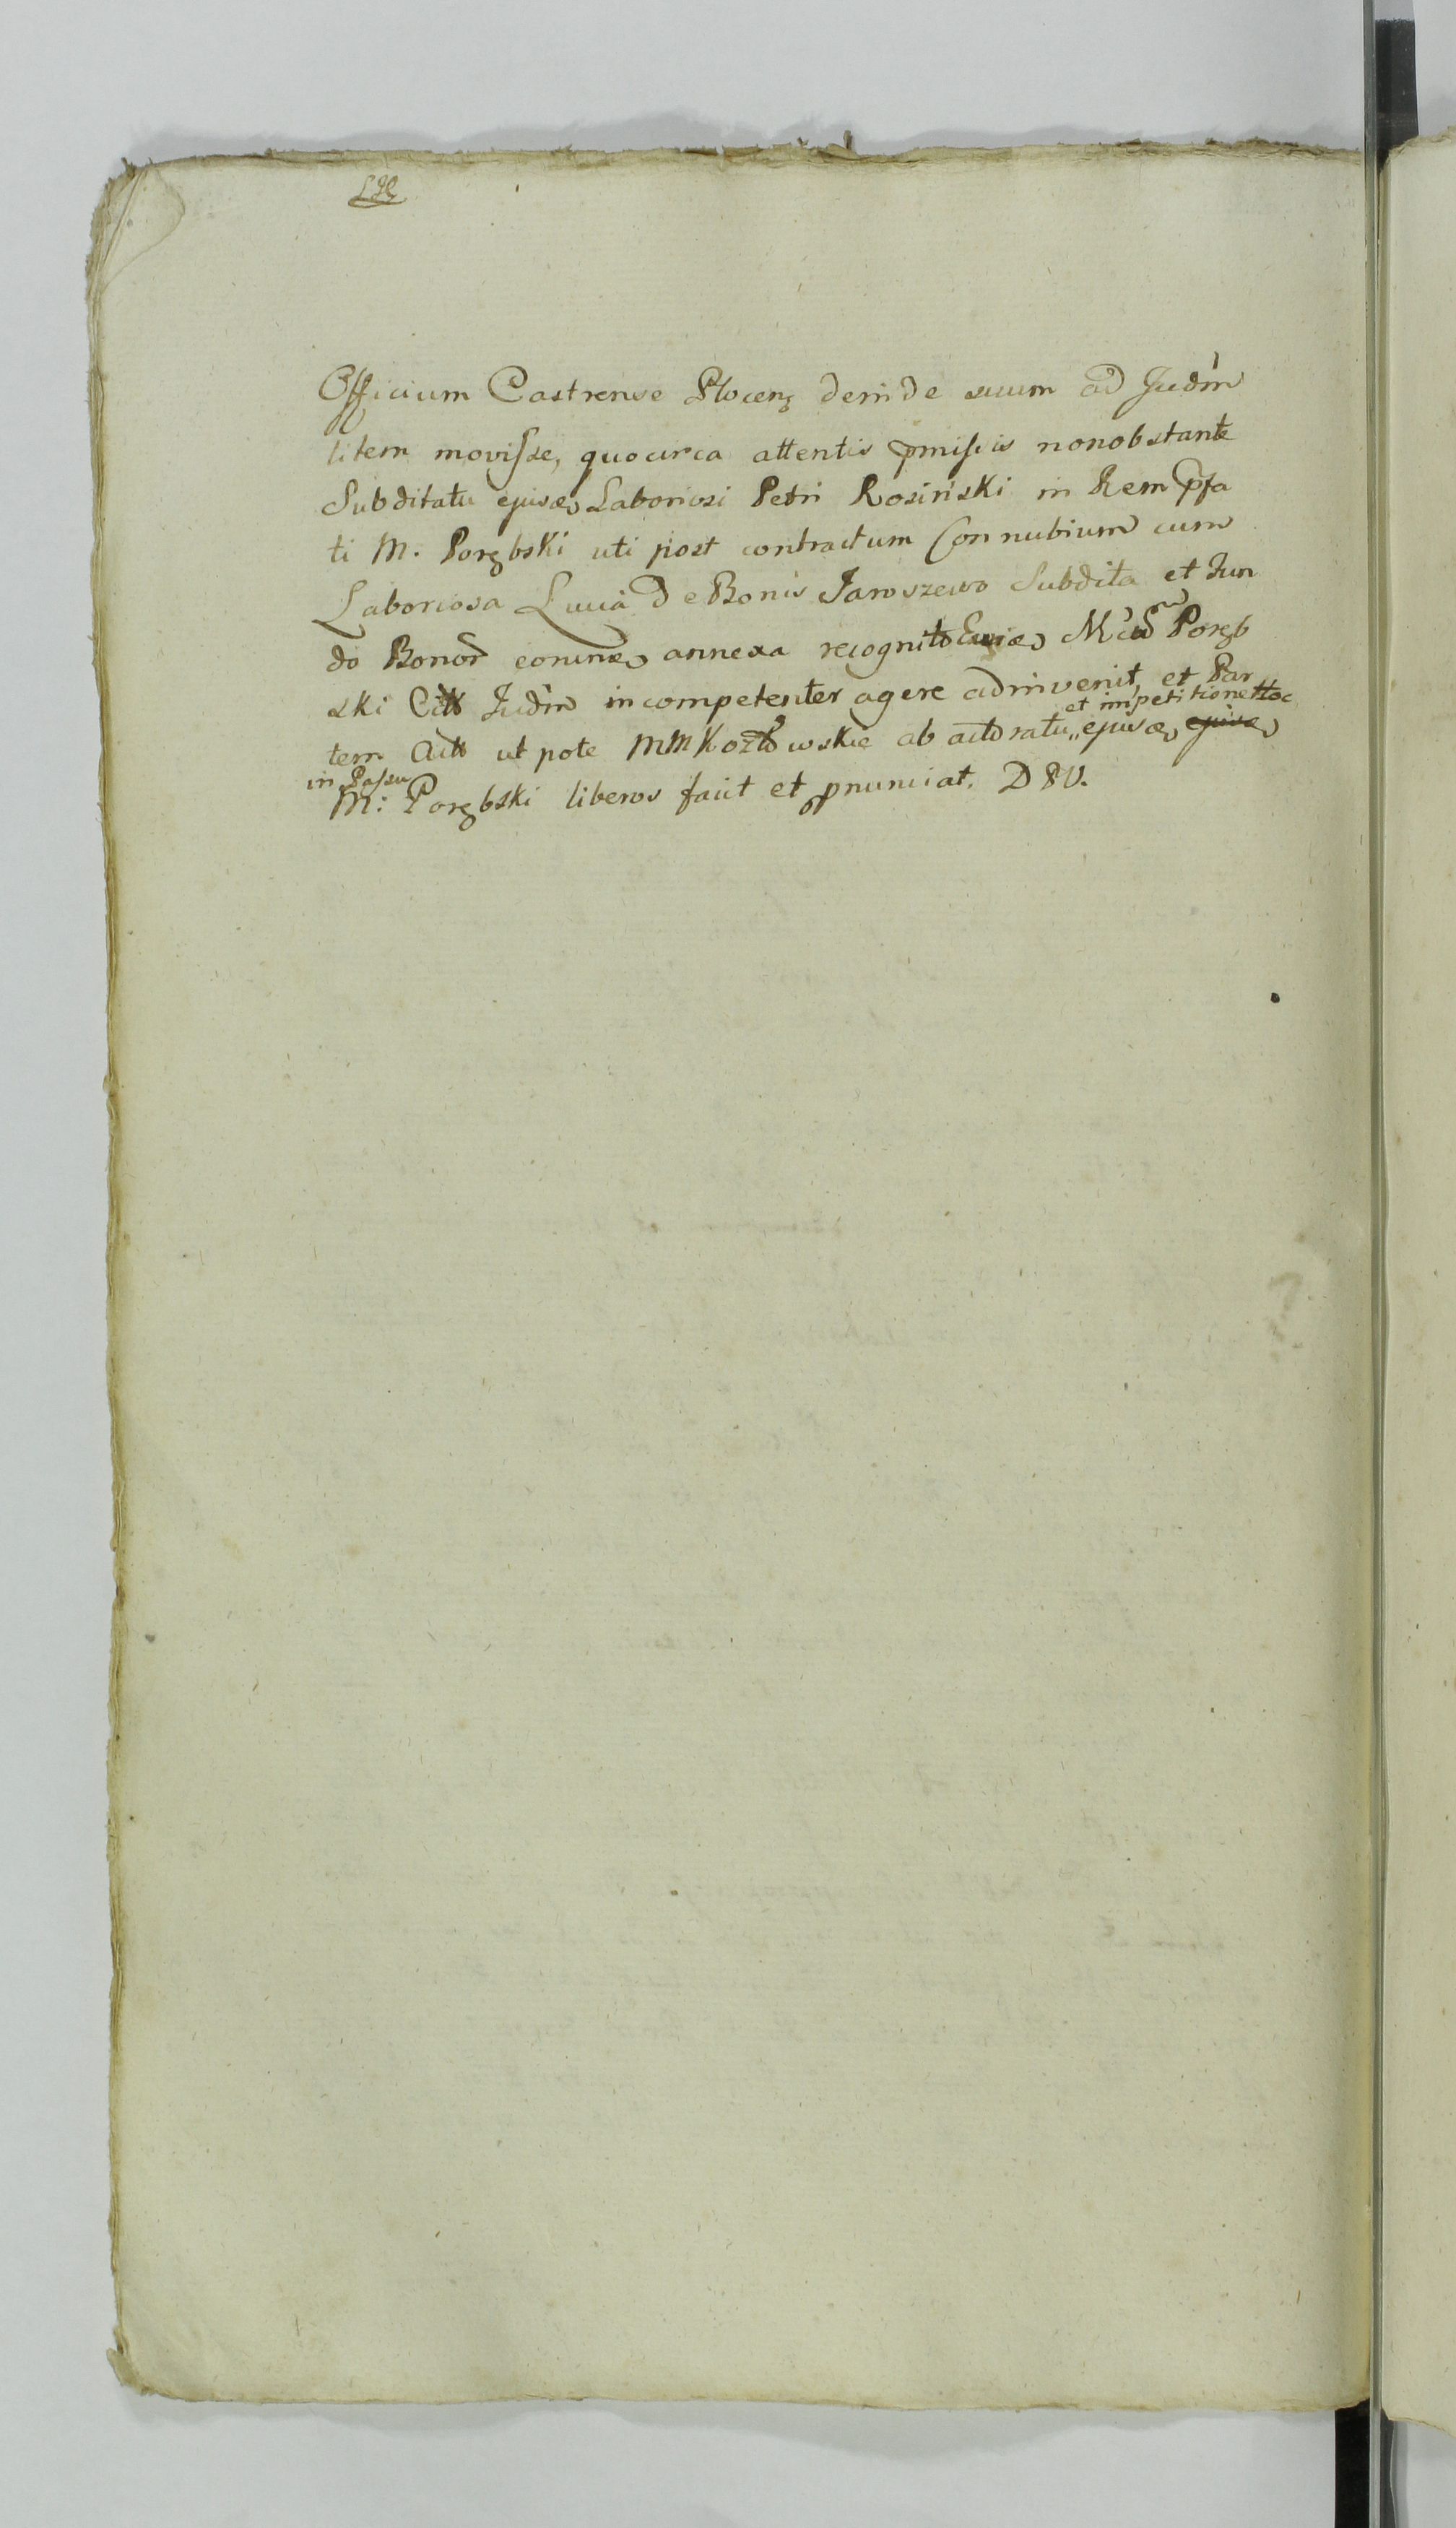 Officium Castrense Plocenz deinde suum ad Judm
litem movisse, quocirca attentis pmissis nonobstante
Subditatu ejusd Laboriosi Petri Rosiński in Rem pfa
ti M. Porębski uti post contractum Connubium cum
Laboriosa Lucia De Bonis Jaroszewo Subdita et Fun
do Bonor eorund annexa recognito Mcum Poręb
ski Citt Judm incompetenter agere adinvenit, et Par
et impetitione hoc
tem Actt ut pote MM Kozłowskie ab actoratu „ ejusd, ejusd
in Passu
M: Porębski liberos facit et pnunciat. DSV.